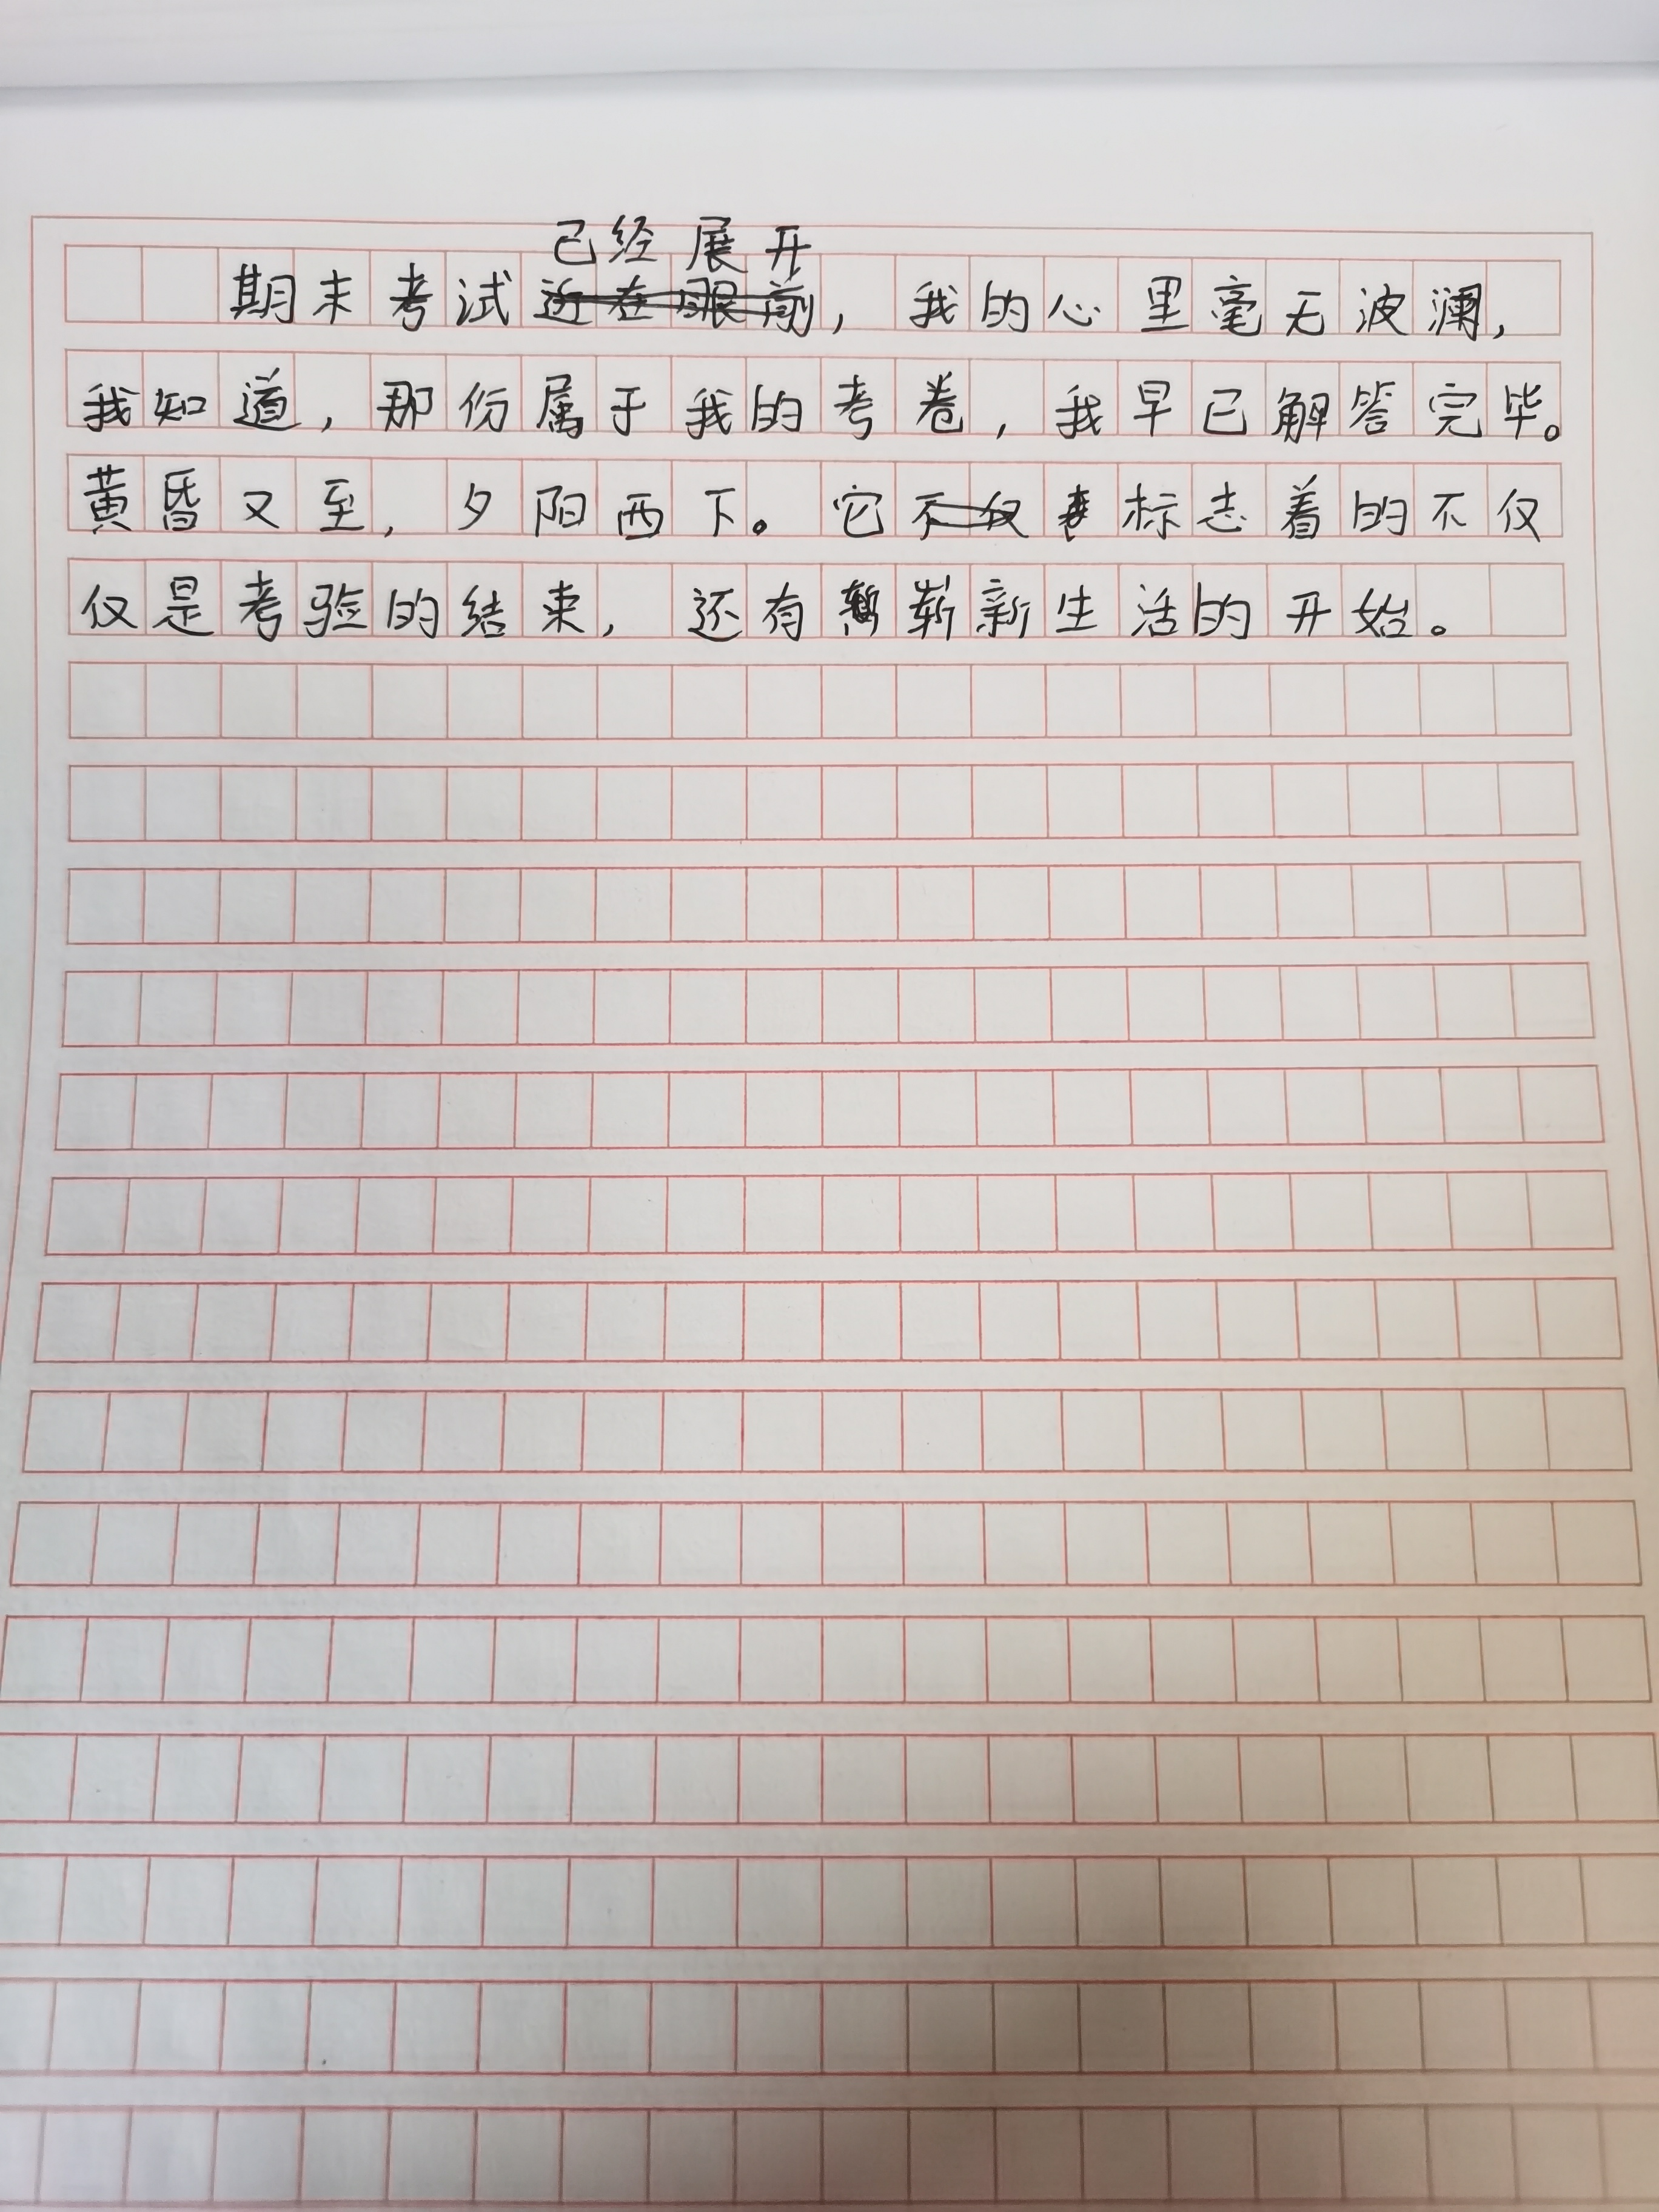 已经展开
期末考试近在眼前，我的心里毫无波澜，
我知道，那份属于我的考卷，我早已解答完毕。
黄昏又至，夕阳西下。它不仅标志着的不仅
仅是考验的结束，还有崭新生活的开始。